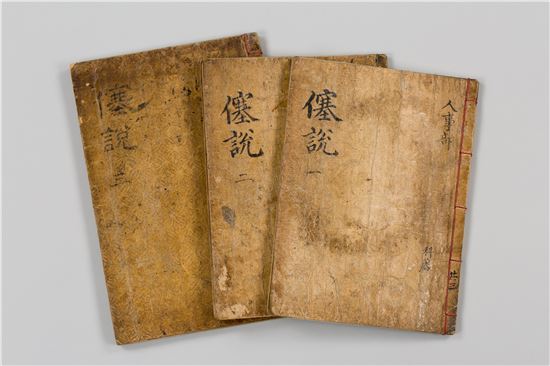 人事部
僿說 一
僿說 二
僿說 三